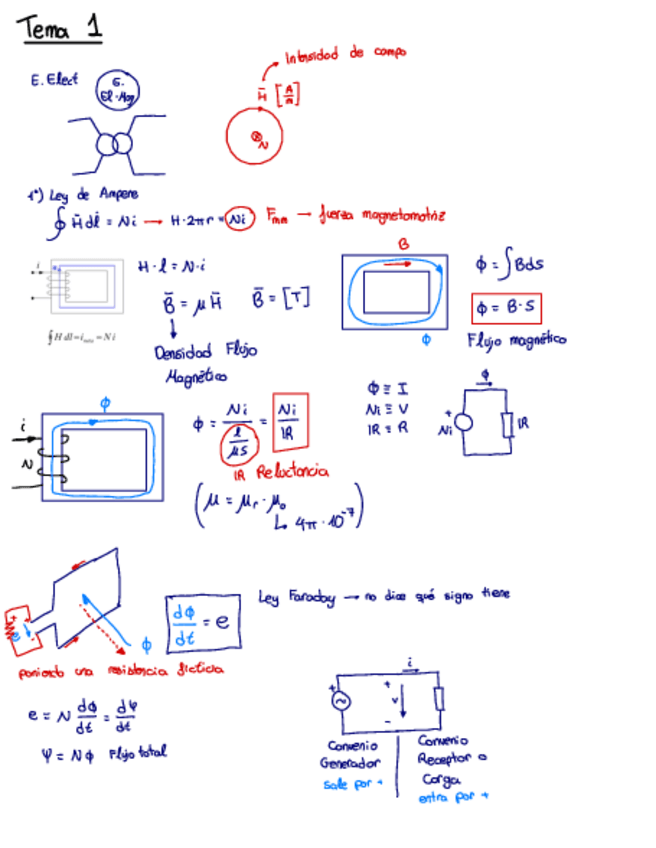 Tema 1
Intensidad de campo
E. Elect
E. El-Mag
H̄ [A/m]
N
1º) Ley de Ampere
∮ H̄ dl̄ = Ni → H·2πr = Ni Fmm → fuerza magnetomotriz
i
H·l = N·i
B
ϕ = ∫ B ds
B̄ = μ H̄ B̄ = [T]
ϕ = B·S
∮ H dl = i = N i
ϕ
Flujo magnético
Densidad Flujo
Magnético
ϕ
i
N
ϕ = Ni / (l / μS) = Ni / IR
IR Reluctancia
(μ = μr · μo
↳ 4π·10⁻⁷)
ϕ ≡ I
Ni ≡ V
IR ≡ R
ϕ
+
Ni
IR
+
e
-
ϕ
dϕ/dt = e
Ley Faraday → no dice qué signo tiene
poniendo una resistencia ficticia
e = N dϕ/dt = dψ/dt
ψ = Nϕ Flujo total
i
+
+
v
-
Convenio
Generador
sale por +
Convenio
Receptor o
Carga
entra por +